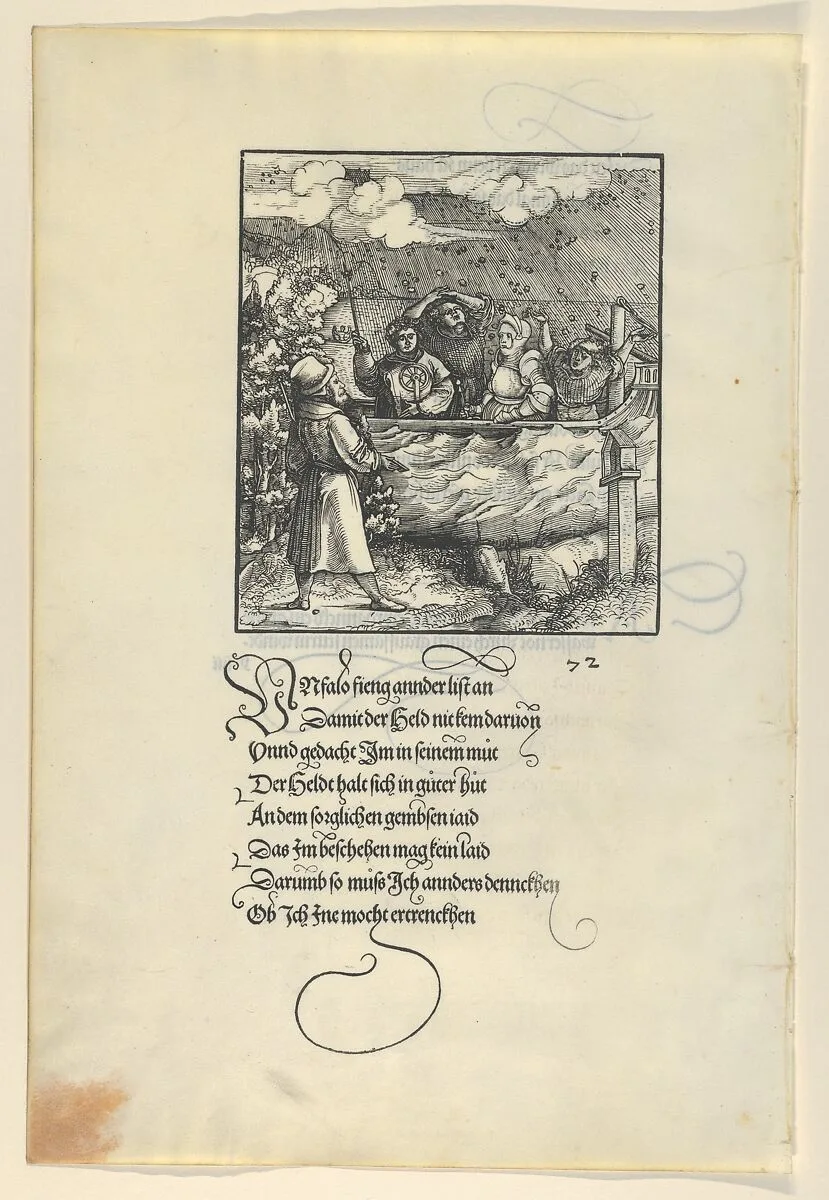 72
VNfalo fieng annder list an
Damit der Held nit kem daruon
Vnnd gedacht Im in seinem můt
Der Heldt halt sich in gůter hůt
An dem sorglichen gembsen iaid
Das Im beschehen mag kein laid
Darumb so můss Ich annders dennckhen
Ob Ich Ine mocht ertrenckhen